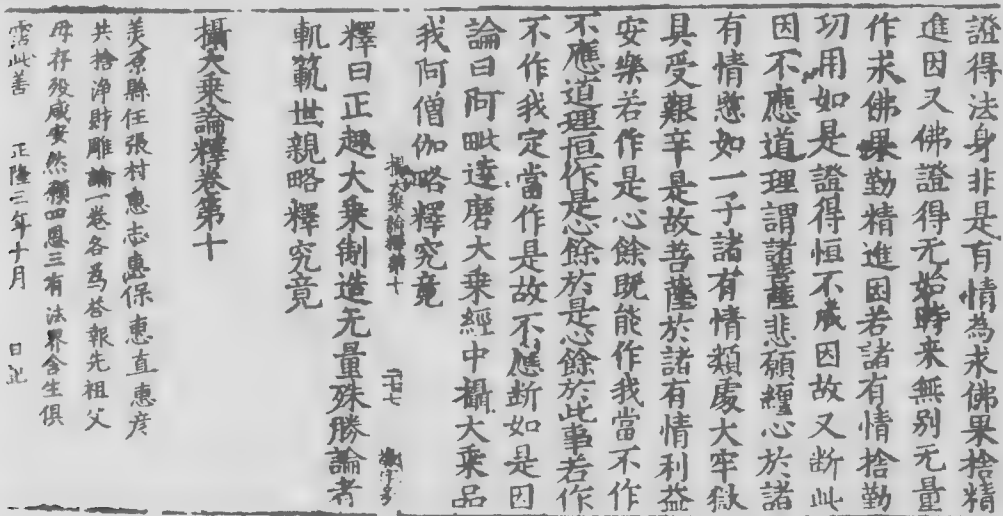 證得法身非是有情為求佛果捨精
進因又佛證得无始時来無别无量
作求佛果勤精進因若諸有情捨勤
功用如是證得恒不成因故又断此
因不應道理謂諸菩薩悲願纏心於諸
有情慜如一子諸有情類處大牢獄
具受艱辛是故菩薩於諸有情利益
安樂若作是心餘既能作我當不作
不應道理恒作是心餘於是心餘於此事若作
不作我定當作是故不應断如是因
論曰阿毗逹磨大乗經中攝大乗品
我阿僧伽略釋究竟
攝大乗論釋第十
二七七
釋曰正趣大乗制造无量殊勝論者
軌範世親略釋究竟
攝大乗論釋卷第十
美原縣任張村惠志惠保惠直惠彦
共捨浄財雕論一卷各為荅報先祖父
母存殁咸安然願四恩三有法界含生俱
霑此善 正隆三年十月 日記